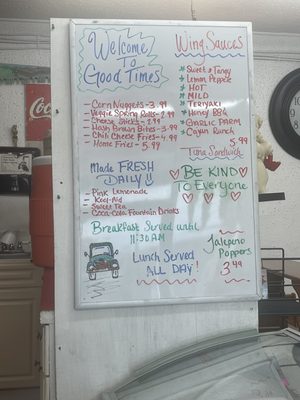 Welcome
To
Good Times
- Corn Nuggets - 3.99
- Veggie Spring Rolls - 2.99
- Cheese Sticks - 2.99
- Hash Brown Bites - 3.99
- Chili Cheese Fries - 4.99
- Home Fries - 5.99
Made FRESH
DAILY!
- Pink Lemonade
- Kool-Aid
- Sweet Tea
- Coca-Cola Fountain Drinks
Breakfast Served until
11:30 AM
Lunch Served
ALL DAY!
Wing Sauces
* Sweet & Tangy
* Lemon Pepper
* HOT
* MILD
* TERIYAKI
* Honey BBQ
* GARLIC PARM
* Cajun Ranch
5.99
Tuna Sandwich
BE KIND
To Everyone
Jalapeno
Poppers
3.99
Coca